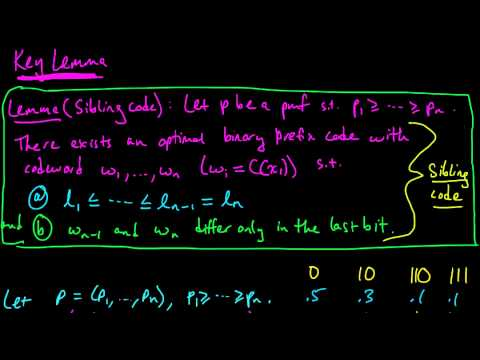 Key Lemma
Lemma (Sibling code): Let p be a pmf s.t. p₁ ≥ ··· ≥ pₙ.
There exists an optimal binary prefix code with
codeword w₁,...,wₙ (wᵢ = C(xᵢ)) s.t.
ⓐ l₁ ≤ ··· ≤ lₙ₋₁ = lₙ
and ⓑ wₙ₋₁ and wₙ differ only in the last bit.
Sibling
code
0 10 110 111
Let p = (p₁,...,pₙ), p₁ ≥ ··· ≥ pₙ. .5 .3 .1 .1